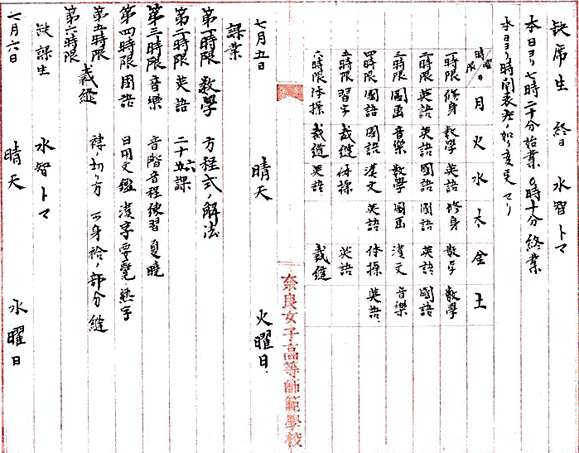 缺席生 終日 水智トマ
本日ヨリ七時二十分始業〇時十分終業
本日ヨリ時間表左ノ如ク変更セリ
時限 曜日 月 火 水 木 金 土
一時限 修身 數學 英語 修身 數学 數學
二時限 英語 英語 國語 國語 英語 國語
三時限 圖画 音樂 數學 圖画 漢文 音樂
四時限 國語 國語 漢文 英語 体操 英語
五時限 習字 裁縫 体操 英語
六時限 体操 裁縫 英語 裁縫
奈良女子高等師範學校
七月五日 晴天 火曜日
課業
第一時限 數學 方程式ノ解法
第二時限 英語 二十五六課
第三時限 音樂 音階音程練習 夏曉
第四時限 國語 日用文鑑 漢字要覽
第五時限
第六時限 裁縫 褄ノ切リ方 袷ノ部分縫
缺課生 水智トマ
七月六日 晴天 水曜日